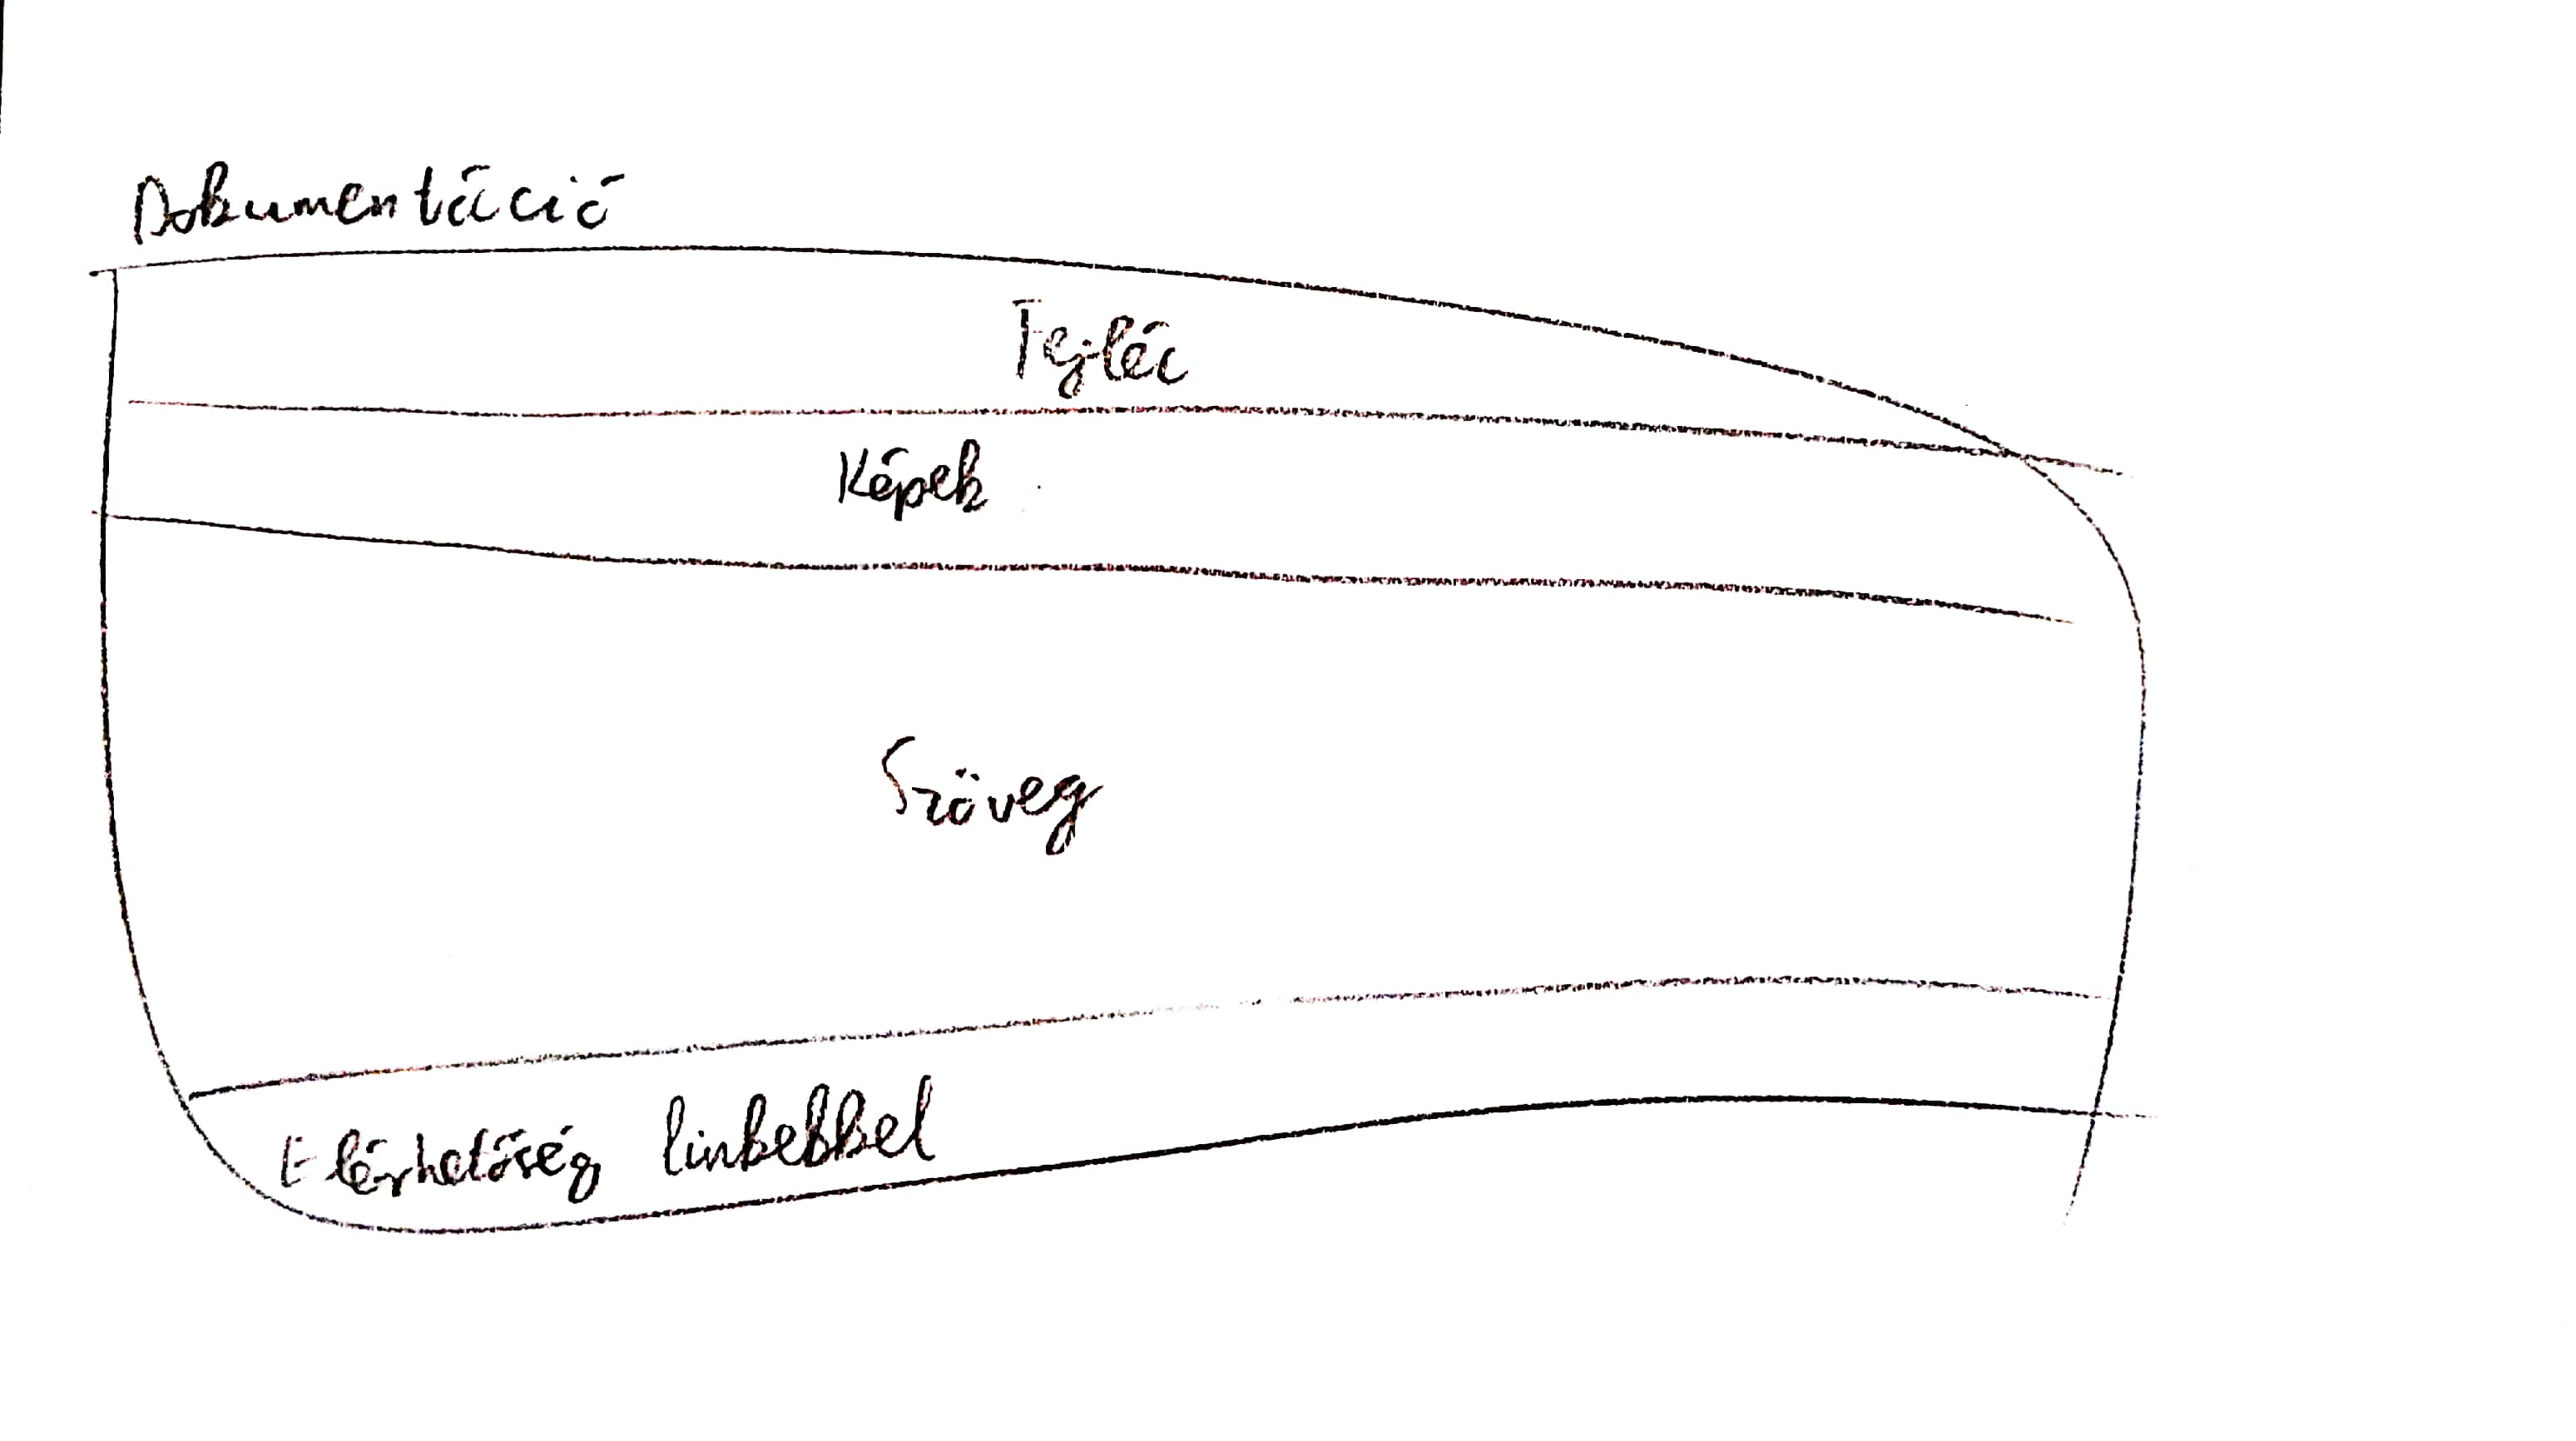 Dokumentáció
Fejléc
Képek
Szöveg
Elérhetőség linkekkel